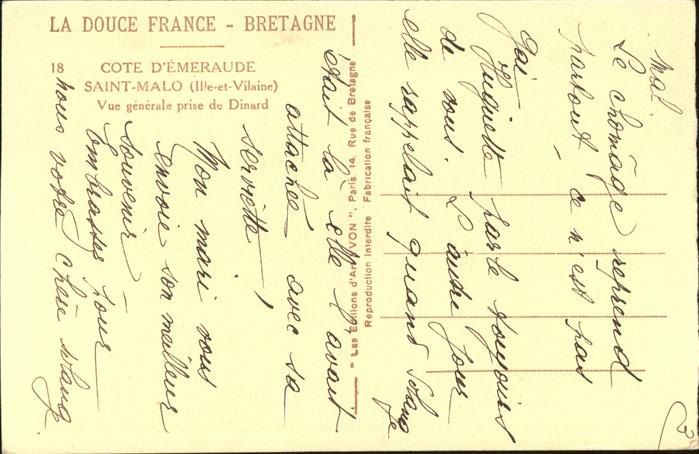 LA DOUCE FRANCE - BRETAGNE
18 COTE D'ÉMERAUDE
SAINT-MALO (Ille-et-Vilaine)
Vue générale prise de Dinard
"Les Editions d'Art YVON", Paris 14, Rue de Bretagne
Reproduction Interdite Fabrication française
mal.
Le chômage reprend
partout - ce n'est pas
gai
Huguette parle toujours
de vous. L'autre jour
elle rappelait quand
était là elle l'avait
attachée avec sa
serviette !
Mon mari vous
envoie son meilleur
souvenir -
Embrassez pour
nous votre chère
3